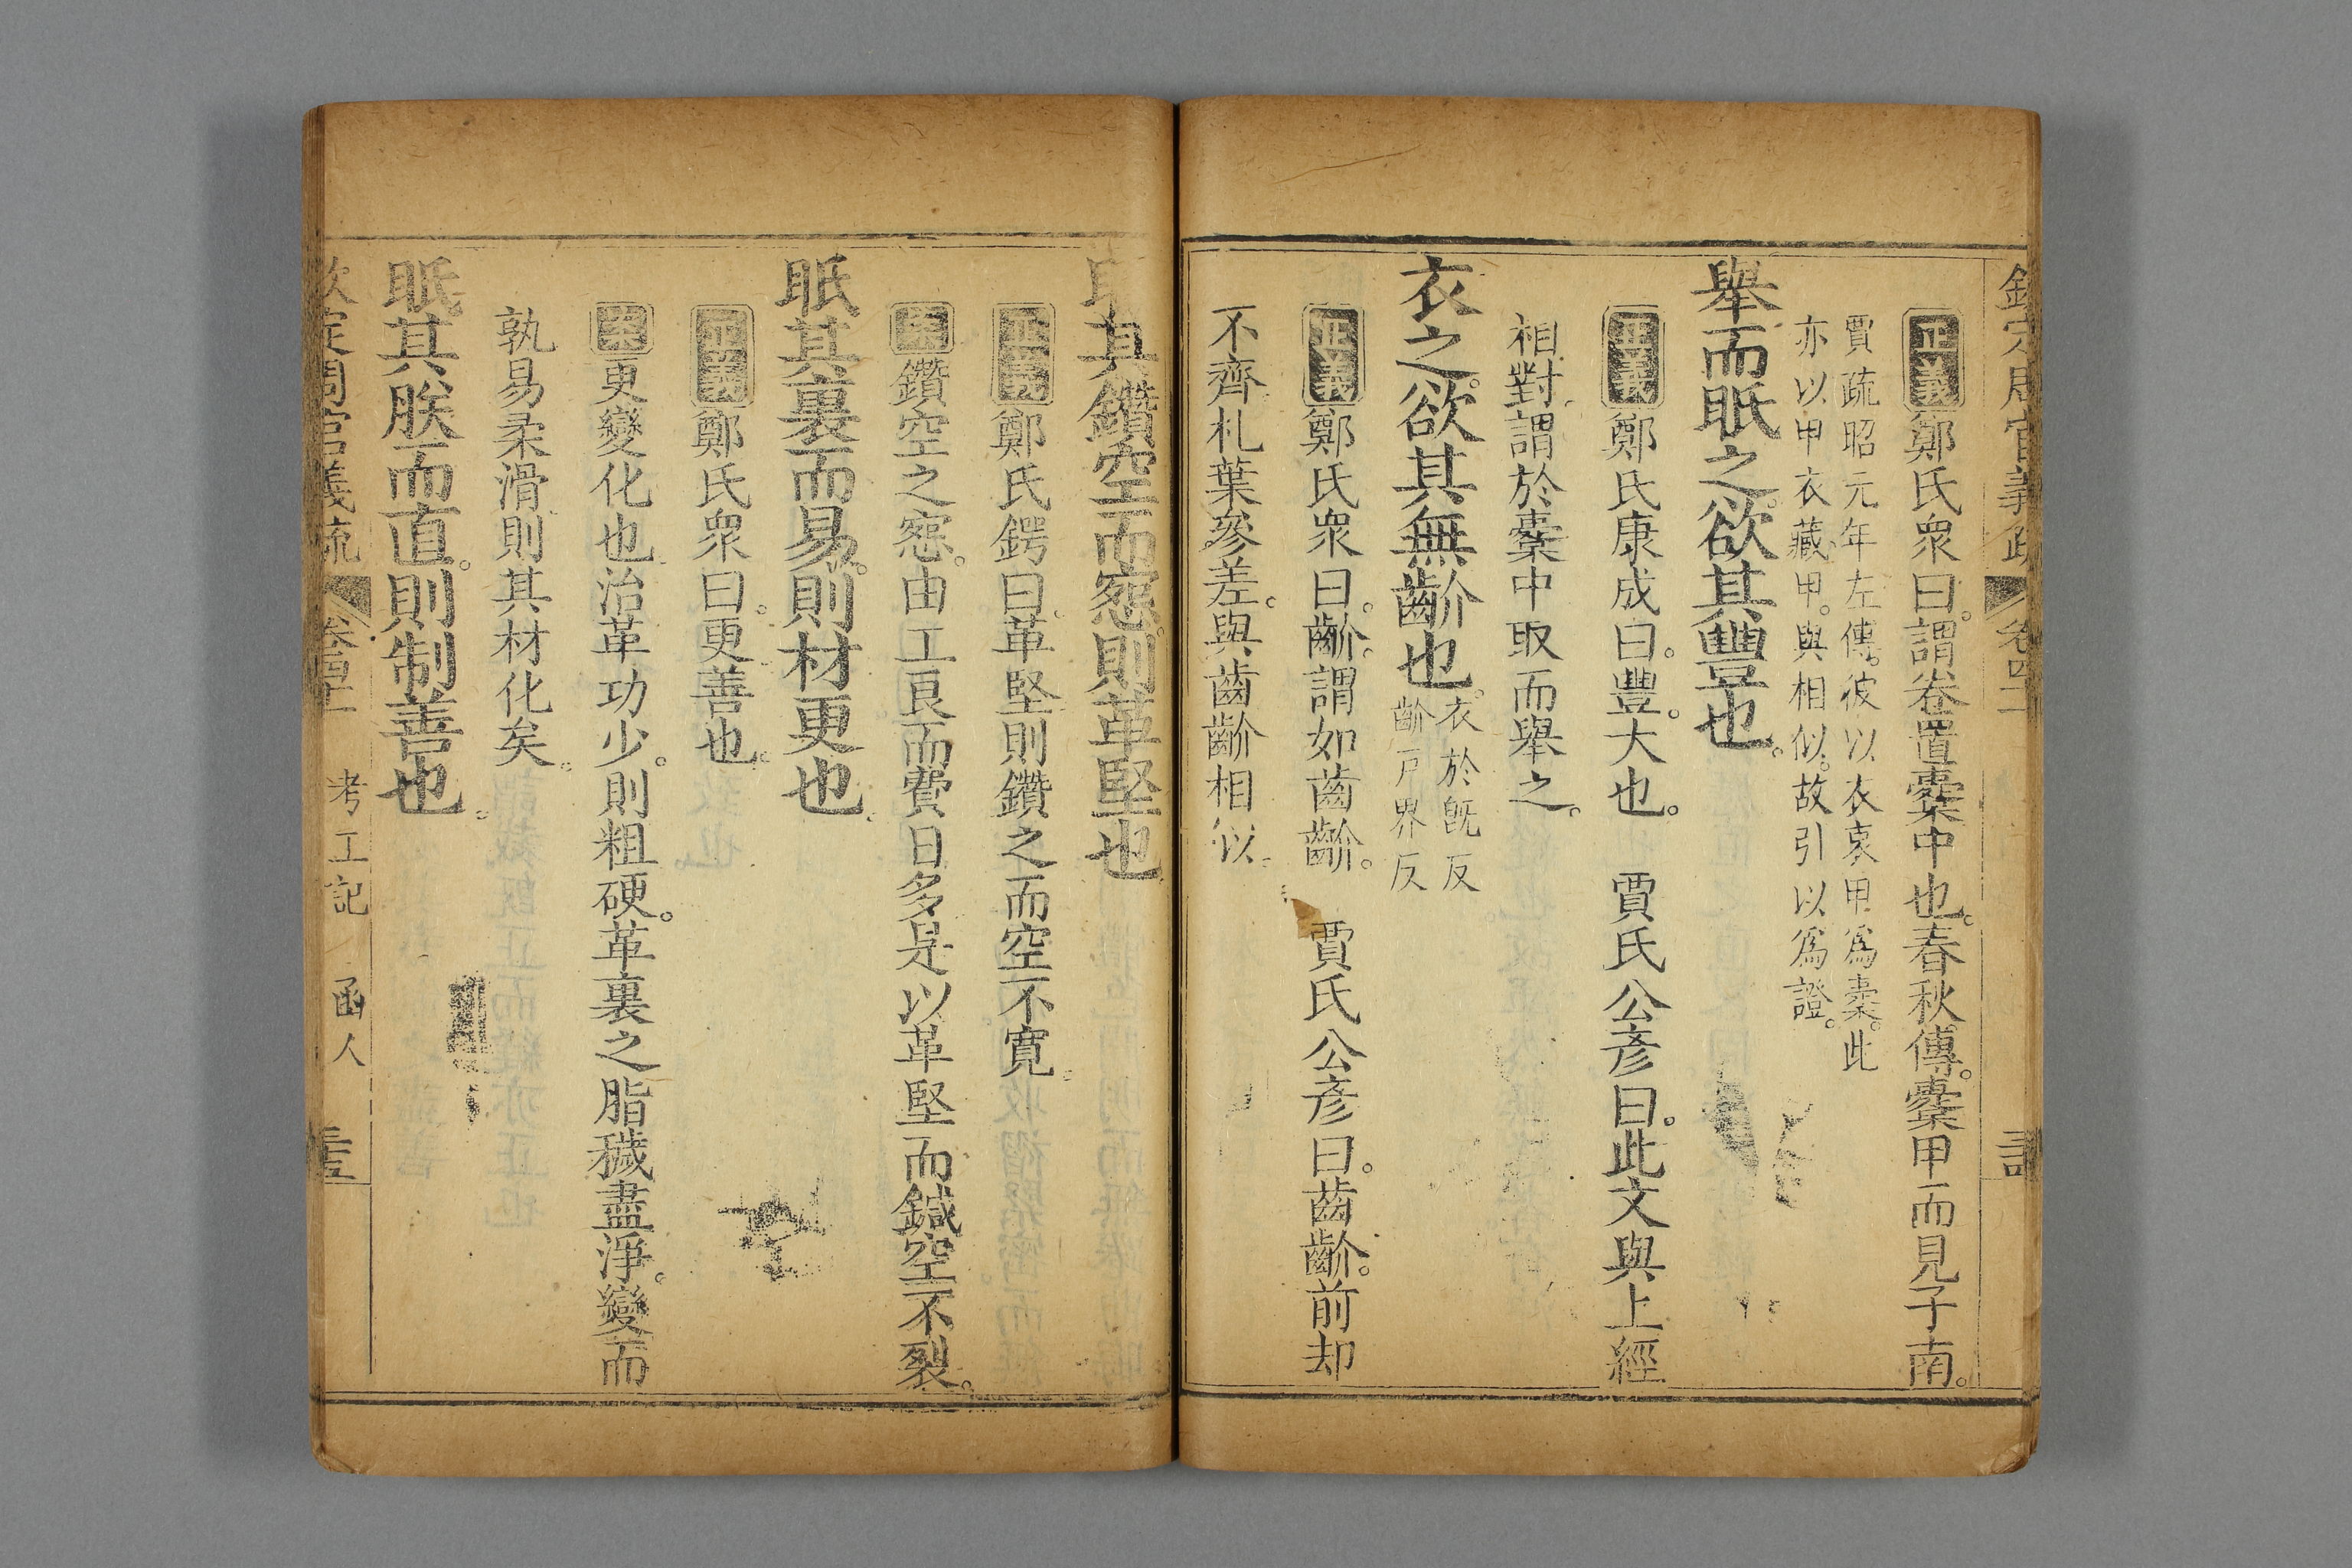 正義鄭氏衆曰。謂卷置櫜中也。春秋傳。櫜甲而見子南。
賈疏昭元年左傳。彼以衣裏甲爲櫜。此
亦以甲衣藏甲。與相似。故引以爲證。
舉而眡之。欲其豐也。
正義鄭氏康成曰。豐。大也。 賈氏公彥曰。此文與上經
相對。謂於櫜中取而舉之。
衣之。欲其無齘也。
衣於旣反
齘戸界反
正義鄭氏衆曰。齘。謂如齒齘。 賈氏公彥曰。齒齘。前却
不齊。札葉參差。與齒齘相似。
其鑽空而窓。則革堅也
正義鄭氏鍔曰。革堅則鑽之而空不寬。
案鑽空之窓。由工良而費日多。是以革堅而鍼空不裂。
眡其裏而易。則材更也。
正義鄭氏衆曰。更善也。
案更變化也。治革功少。則粗硬。革裏之脂穢盡淨。變而
孰易柔滑則其材化矣。
眡其朕而直。則制善也。
考工記 函人